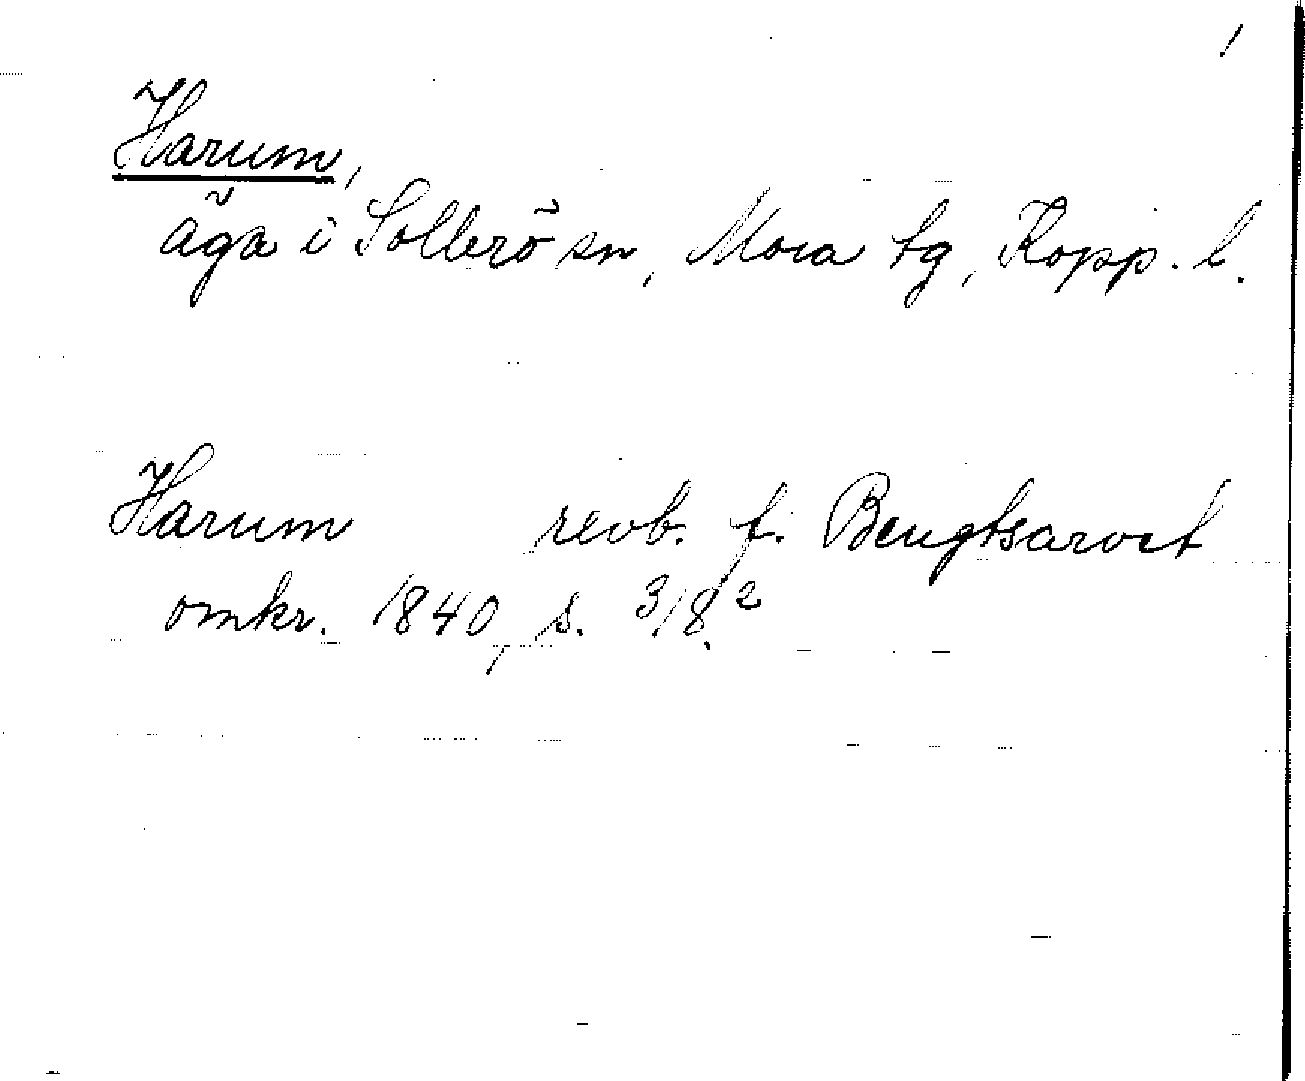 Harum,
äga i Sollerö sn, Mora tg, Kopp. l.
Harum revb. f. Bengtsarvet
omkr. 1840, s. 318.²